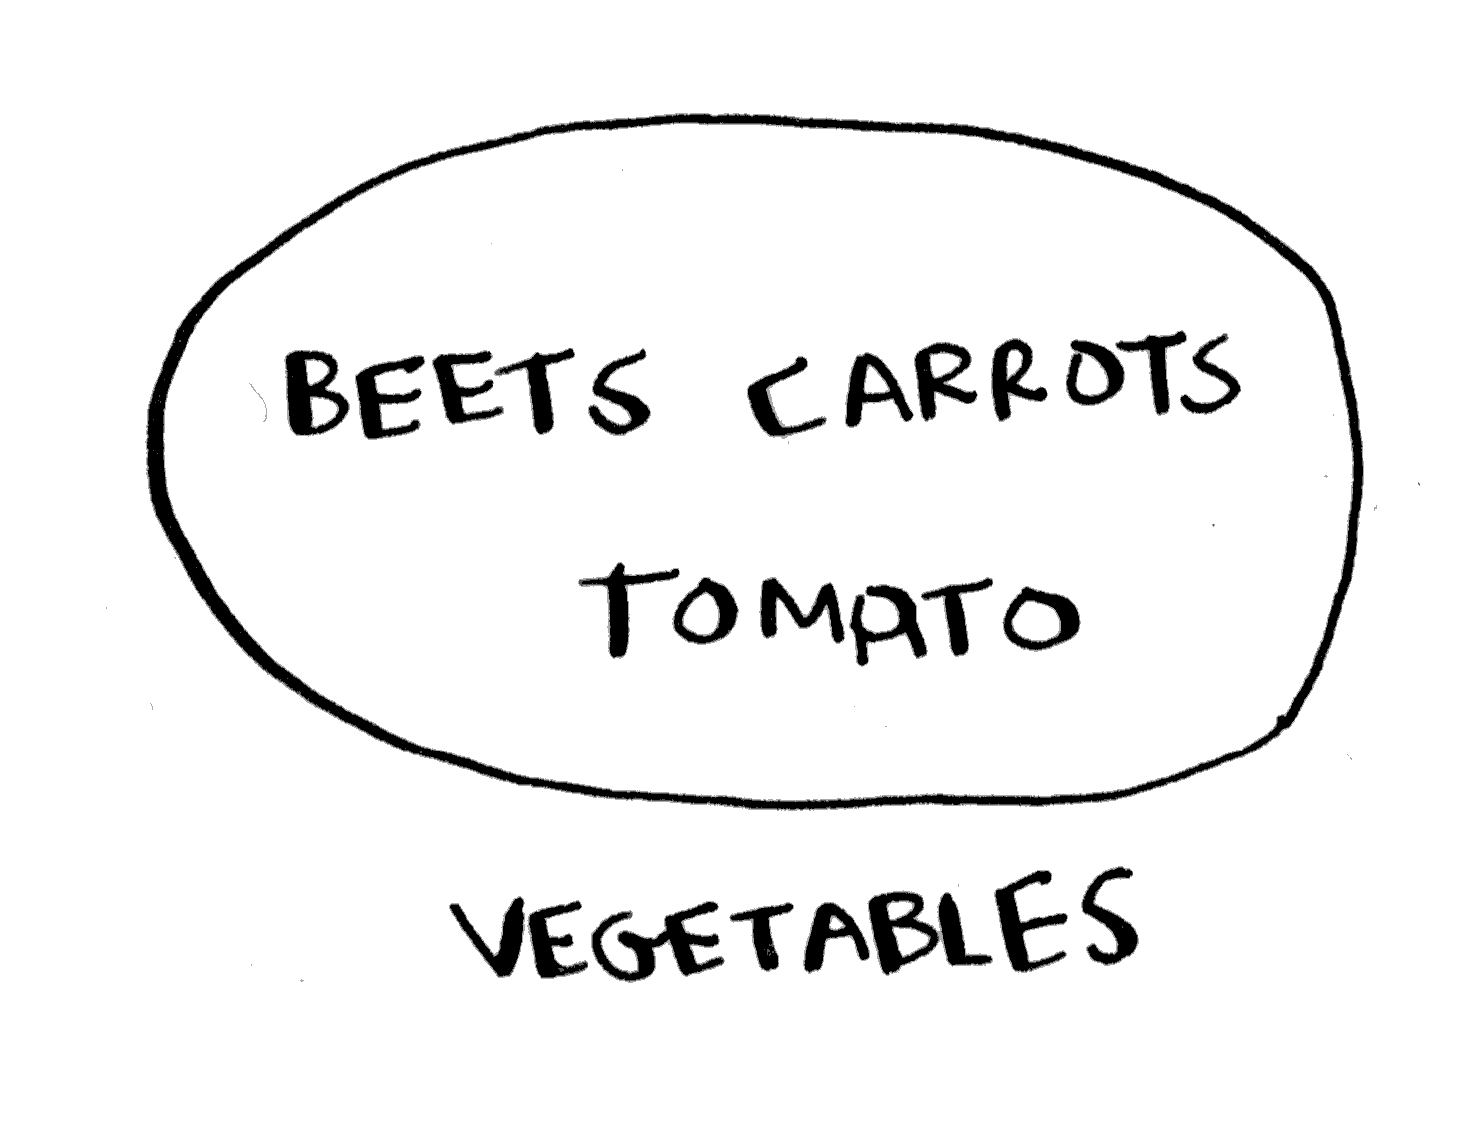 BEETS CARROTS
TOMATO
VEGETABLES